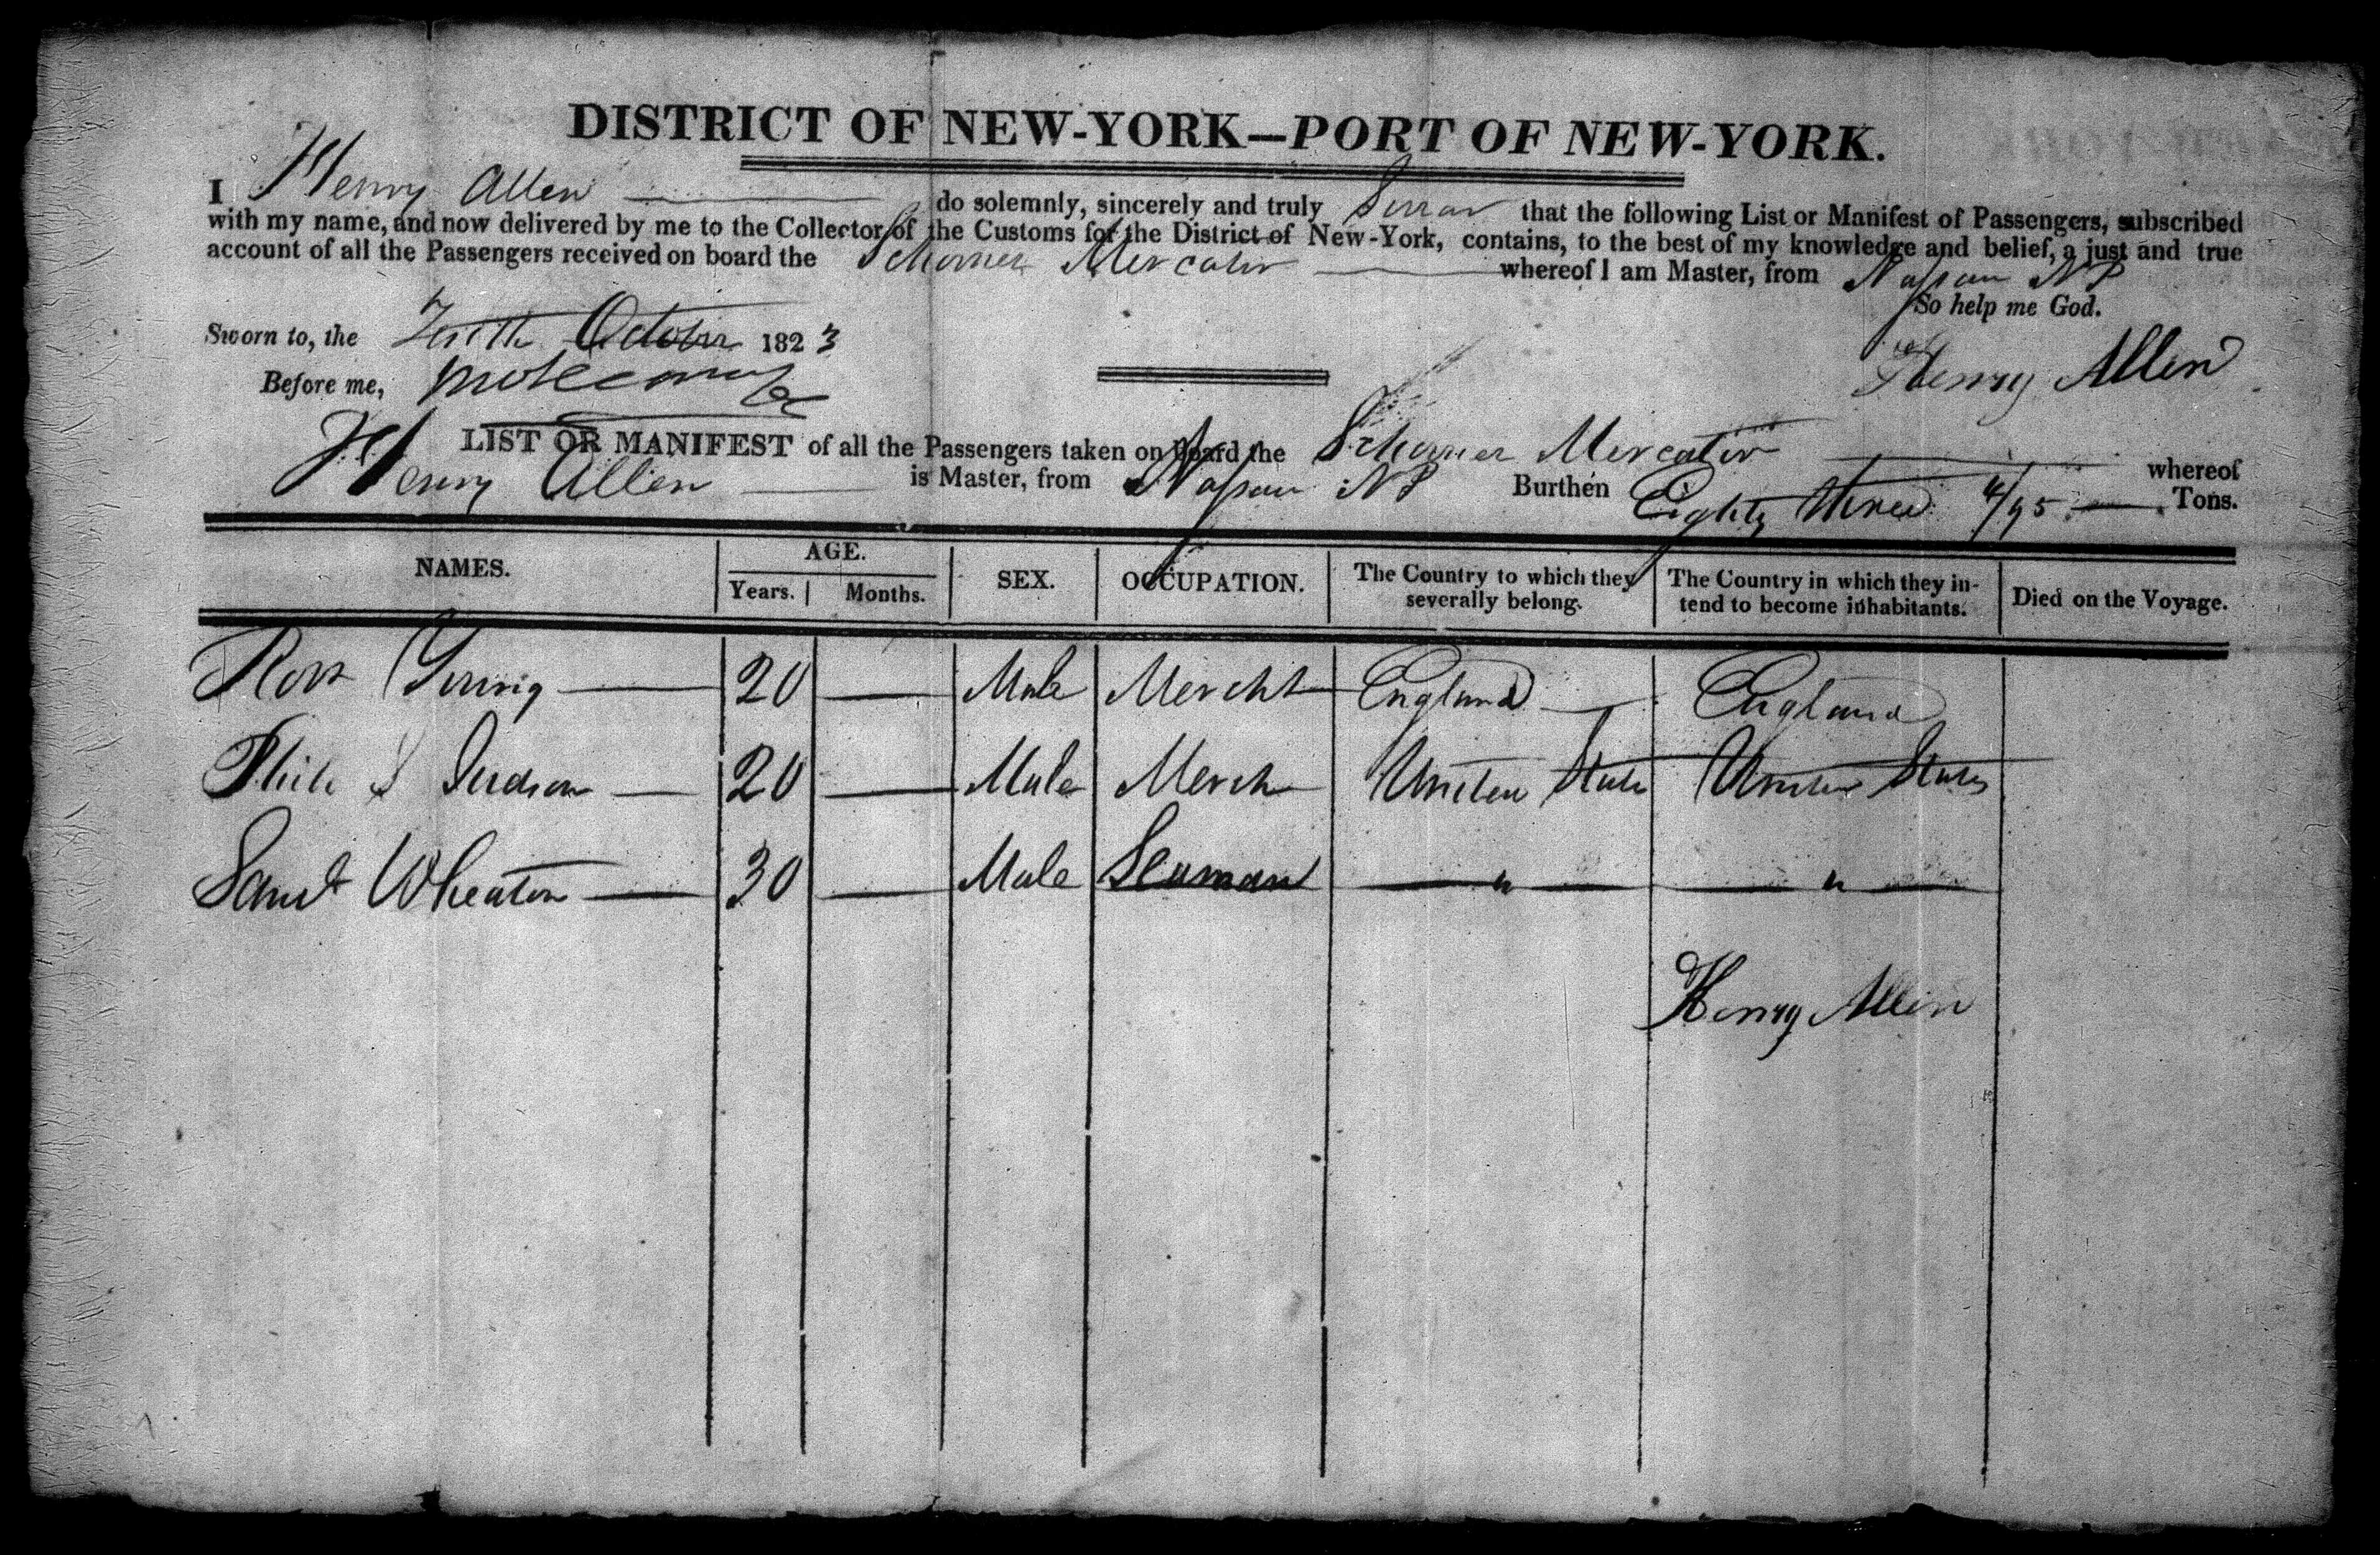 DISTRICT OF NEW-YORK—PORT OF NEW-YORK.
I Henry Allen do solemnly, sincerely and truly Swear that the following List or Manifest of Passengers, subscribed
with my name, and now delivered by me to the Collector of the Customs for the District of New-York, contains, to the best of my knowledge and belief, a just and true
account of all the Passengers received on board the Schooner Mercator whereof I am Master, from Nassau NP
So help me God.
Sworn to, the Tenth October 1823
Before me,
Henry Allen
LIST OR MANIFEST of all the Passengers taken on board the Schooner Mercator whereof
Henry Allen is Master, from Nassau NP Burthen Eighty three 4/95 Tons.
NAMES. AGE. SEX. OCCUPATION. The Country to which they severally belong. The Country in which they intend to become inhabitants. Died on the Voyage.
Years. Months.
Ross 20 Male Mercht England England
S Judson 20 Male Merch United State United States
Saml Wheaton 30 Male Seaman " "
Henry Allen